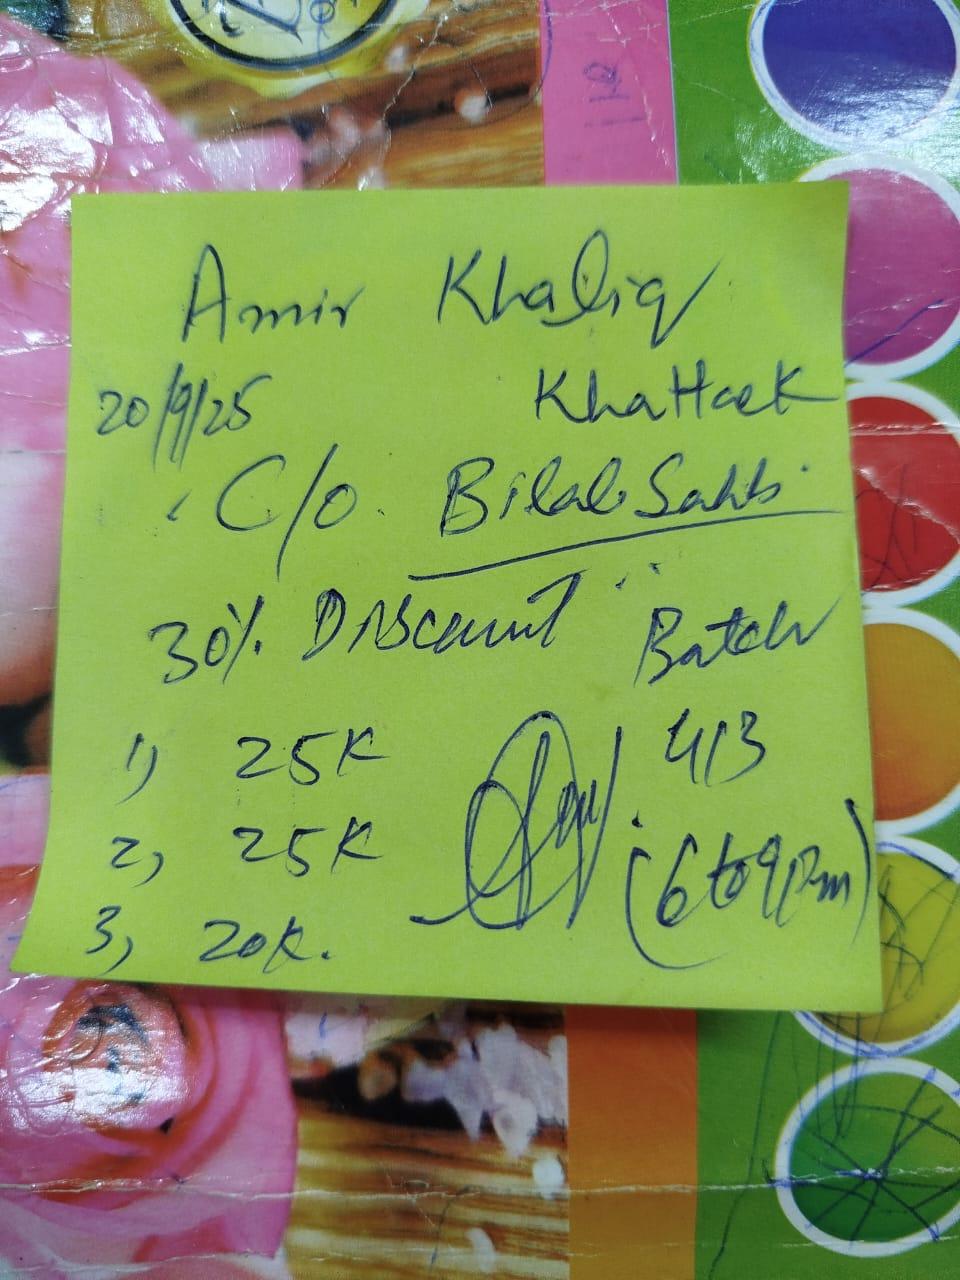 Amir Khaliq
Khattak
20/9/25
C/o. Bilal Sahb.
30% Discount
Batch
413
(6 to 9pm)
1) 25K
2) 25K
3) 20K.